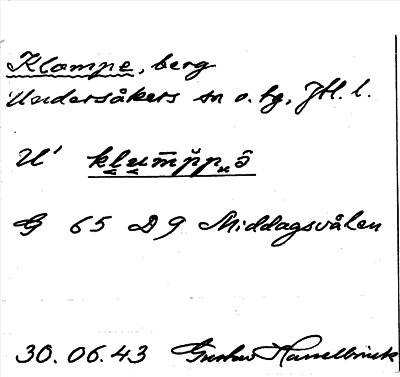 Klampe, berg
Undersåkers sn o. tg, Jtl. l.
U'
G 65 D 9 Middagsvålen
30.06.43 Gustav Hasselbrink